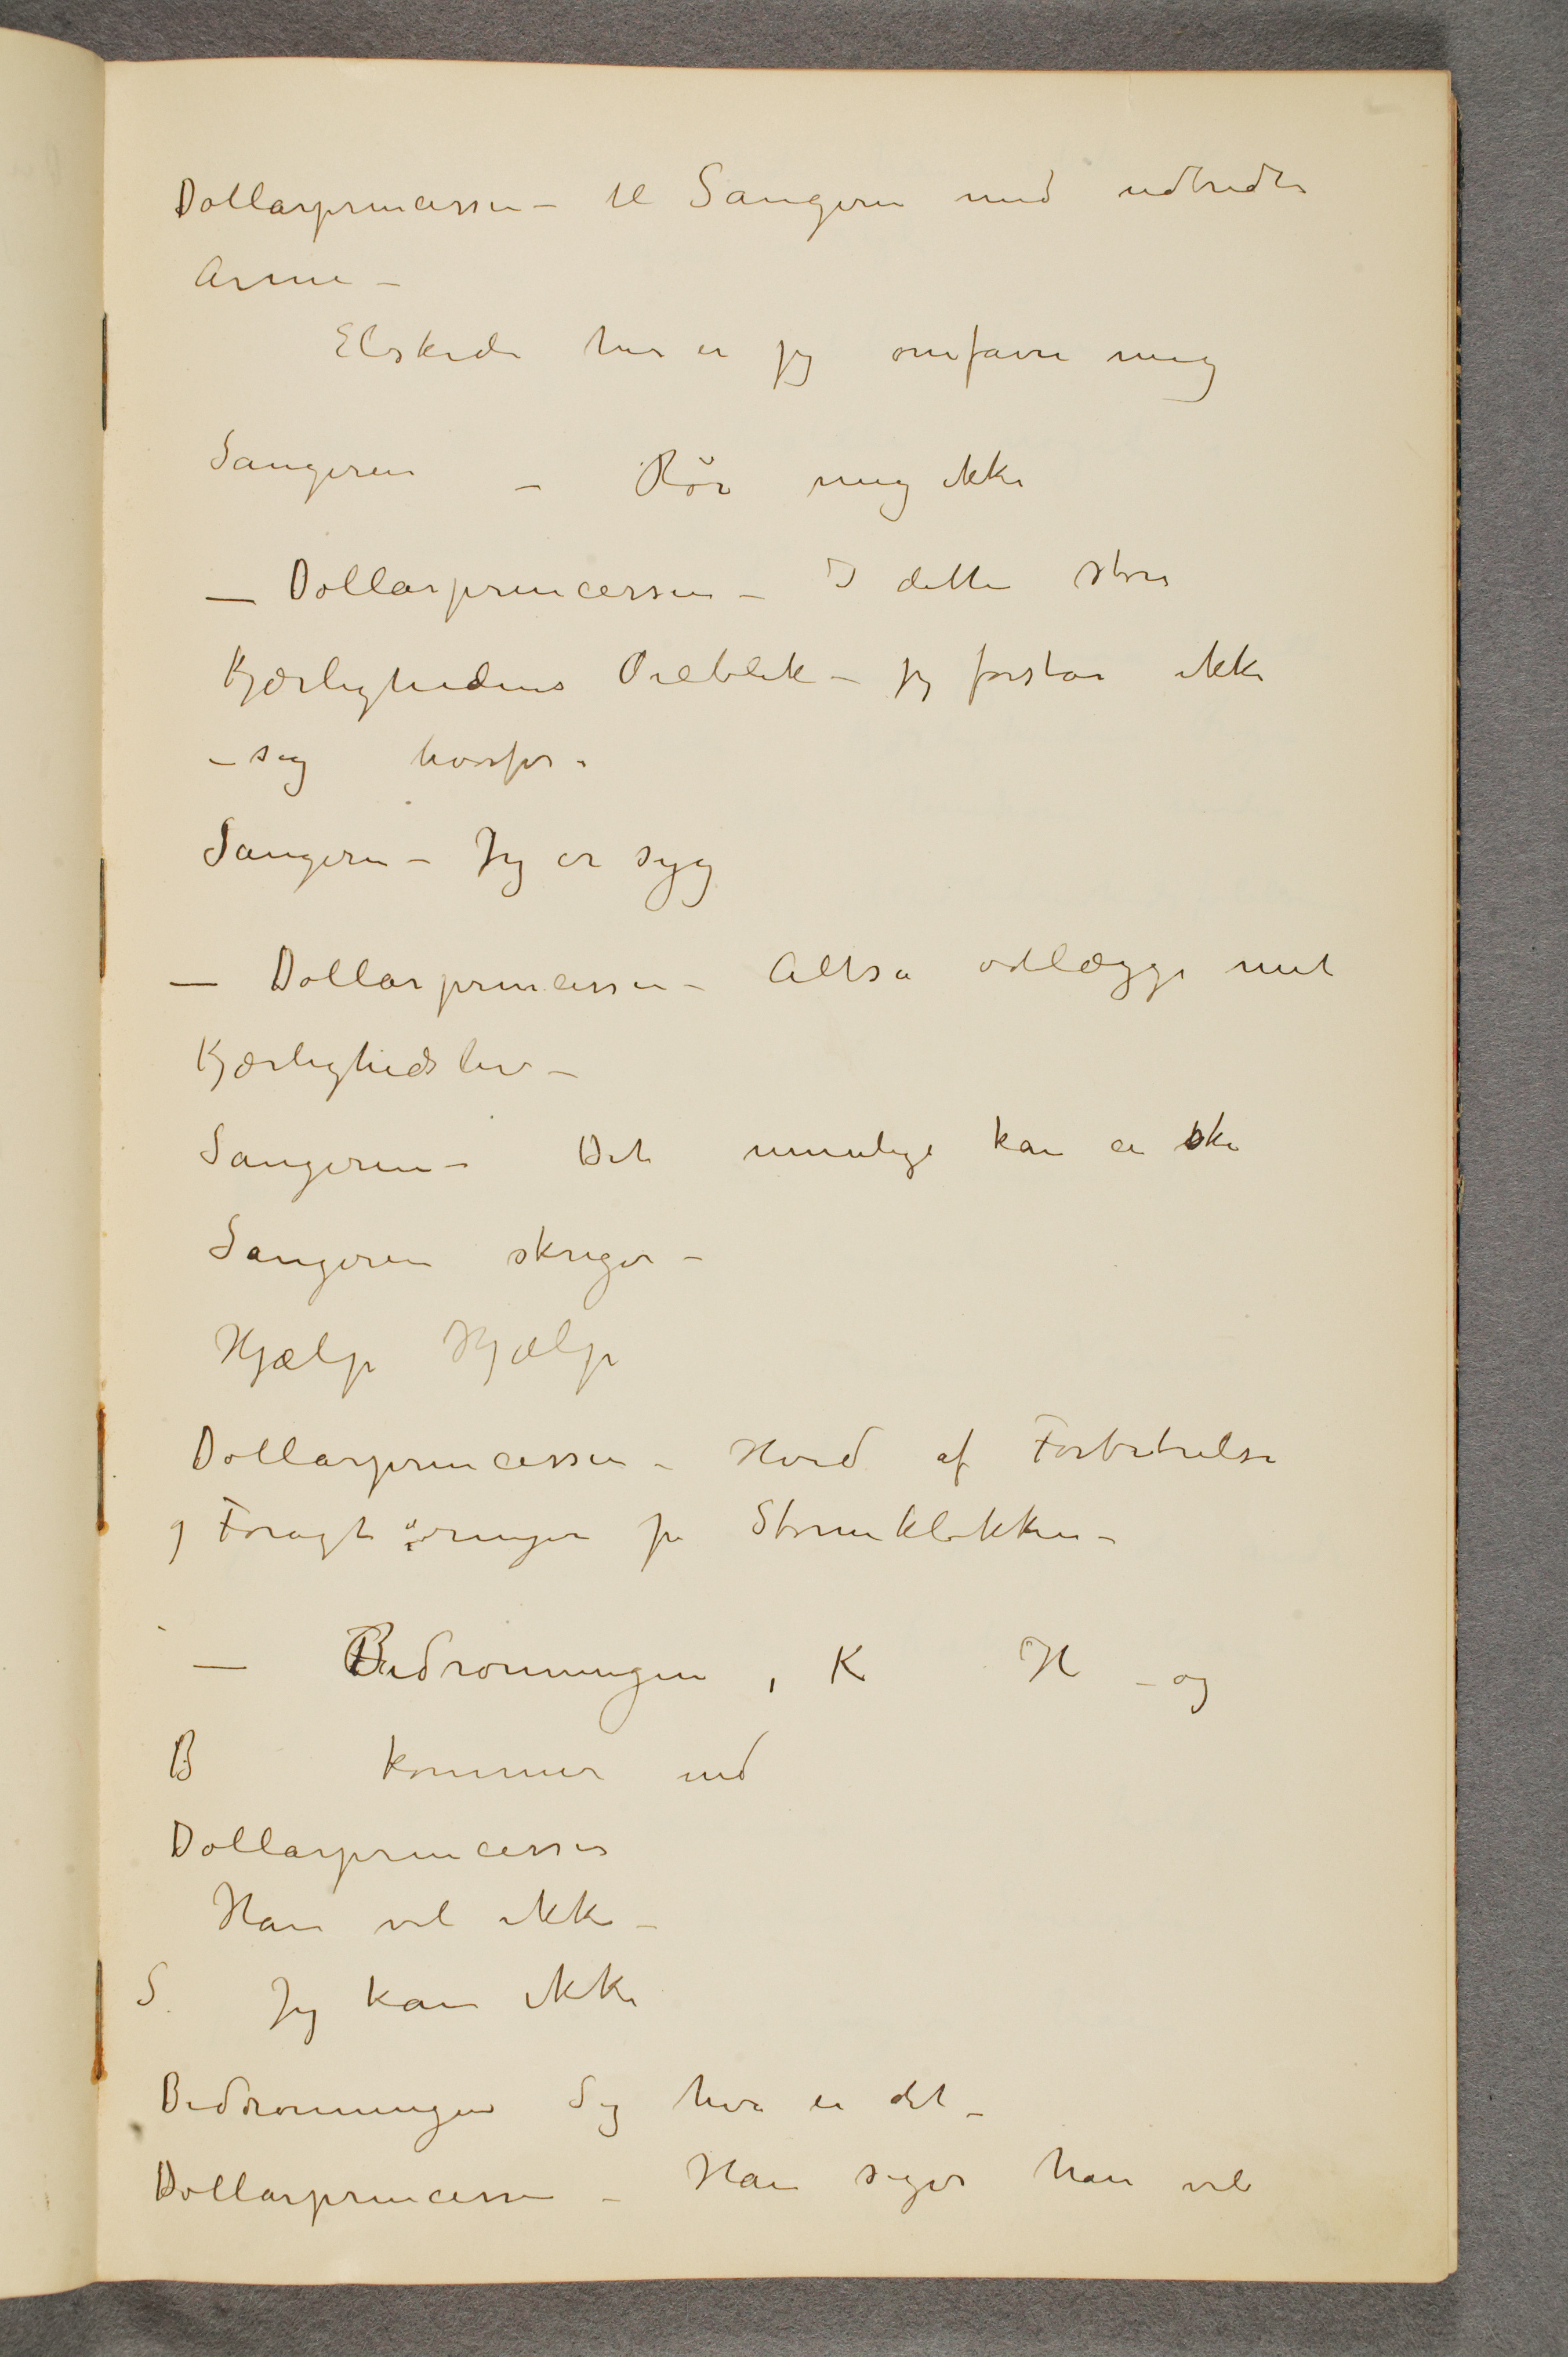 Dollarprincessen – til Sangeren med udbredte
Arme –
Elskede her er jeg omfavn mig
Sangeren – Rör mig ikke
– Dollarprincessen – I dette store
Kjærlighedens Øieblik – jeg forstår ikke
– sig hvorfor.
Sangeren – Jeg er syg
– Dollarprincessen – Altså ødlægge mit
Kjærlighedsliv –
Sangeren – Det umulige kan ei ske
Sangeren skriger –
Hjælp Hjælp
Dollarprincessen – Hvid af Forbitrelse
og Foragt ringer på Stormklokken –
– Bidronningen, K H – og
B kommer ind
Dollarprincessen
Han vil ikke –
S. Jeg kan ikke
Bidronningen Sig hva er det –
Dollarprincessen – Han siger han vil